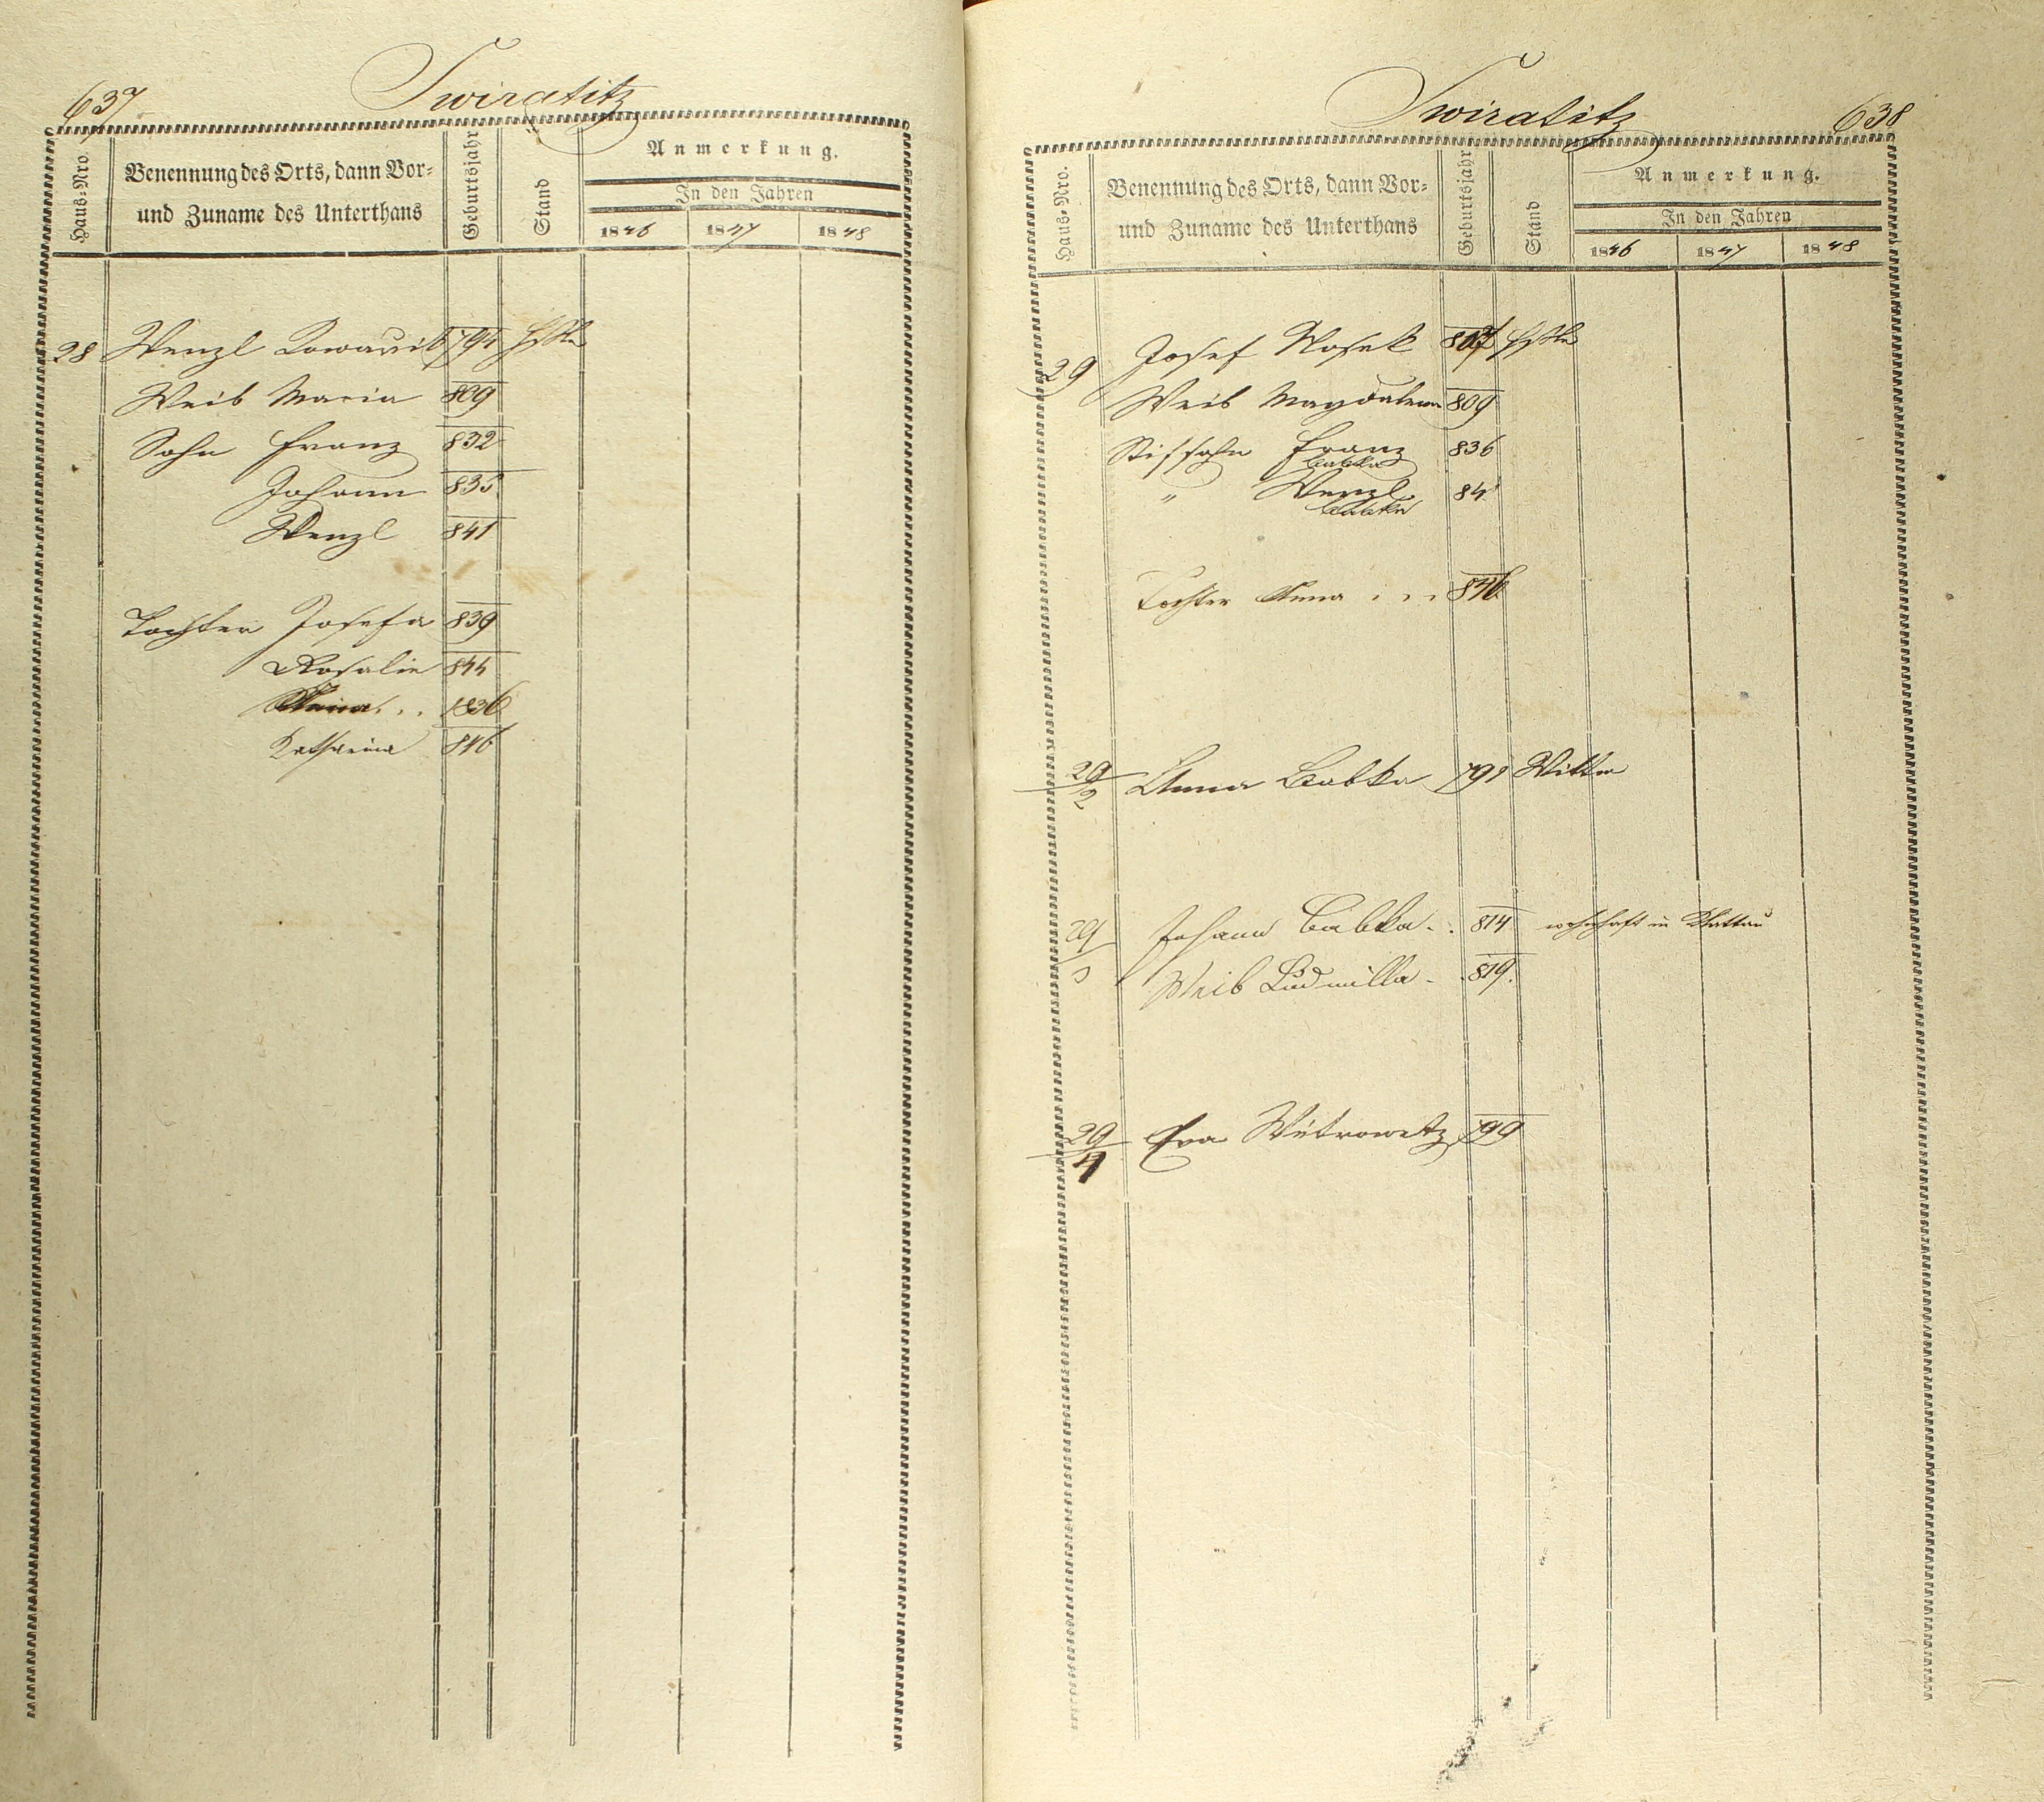 637
Swiratitz
Haus-Nro.
Benennung des Orts, dann Vor-
und Zuname des Unterthans
Geburtsjahr
Stand
Anmerkung.
In den Jahren
1846 1847 1848
28 Wenzl 794
Weib Maria 809
Sohn Franz 832
Johann 835
Wenzl 841
Tochter Josefa 839
Rosalie 844
1836
Katharina 846
Swiratitz
638
Haus-Nro.
Benennung des Orts, dann Vor-
und Zuname des Unterthans
Geburtsjahr
Stand
Anmerkung.
In den Jahren
1846 1847 1848
29 Josef Nosek
Weib Magdalena 809
Stifsohn Franz 836
Babka
" Wenzl 84
Babka
Tochter Anna . . . 846
29/2 Anna Babka 791 Wittw
29/3 Johann Babka . . 814 wohnhaft in Klattau
Weib Ludmilla - . 819.
29/4 Eva Witrowetz 799